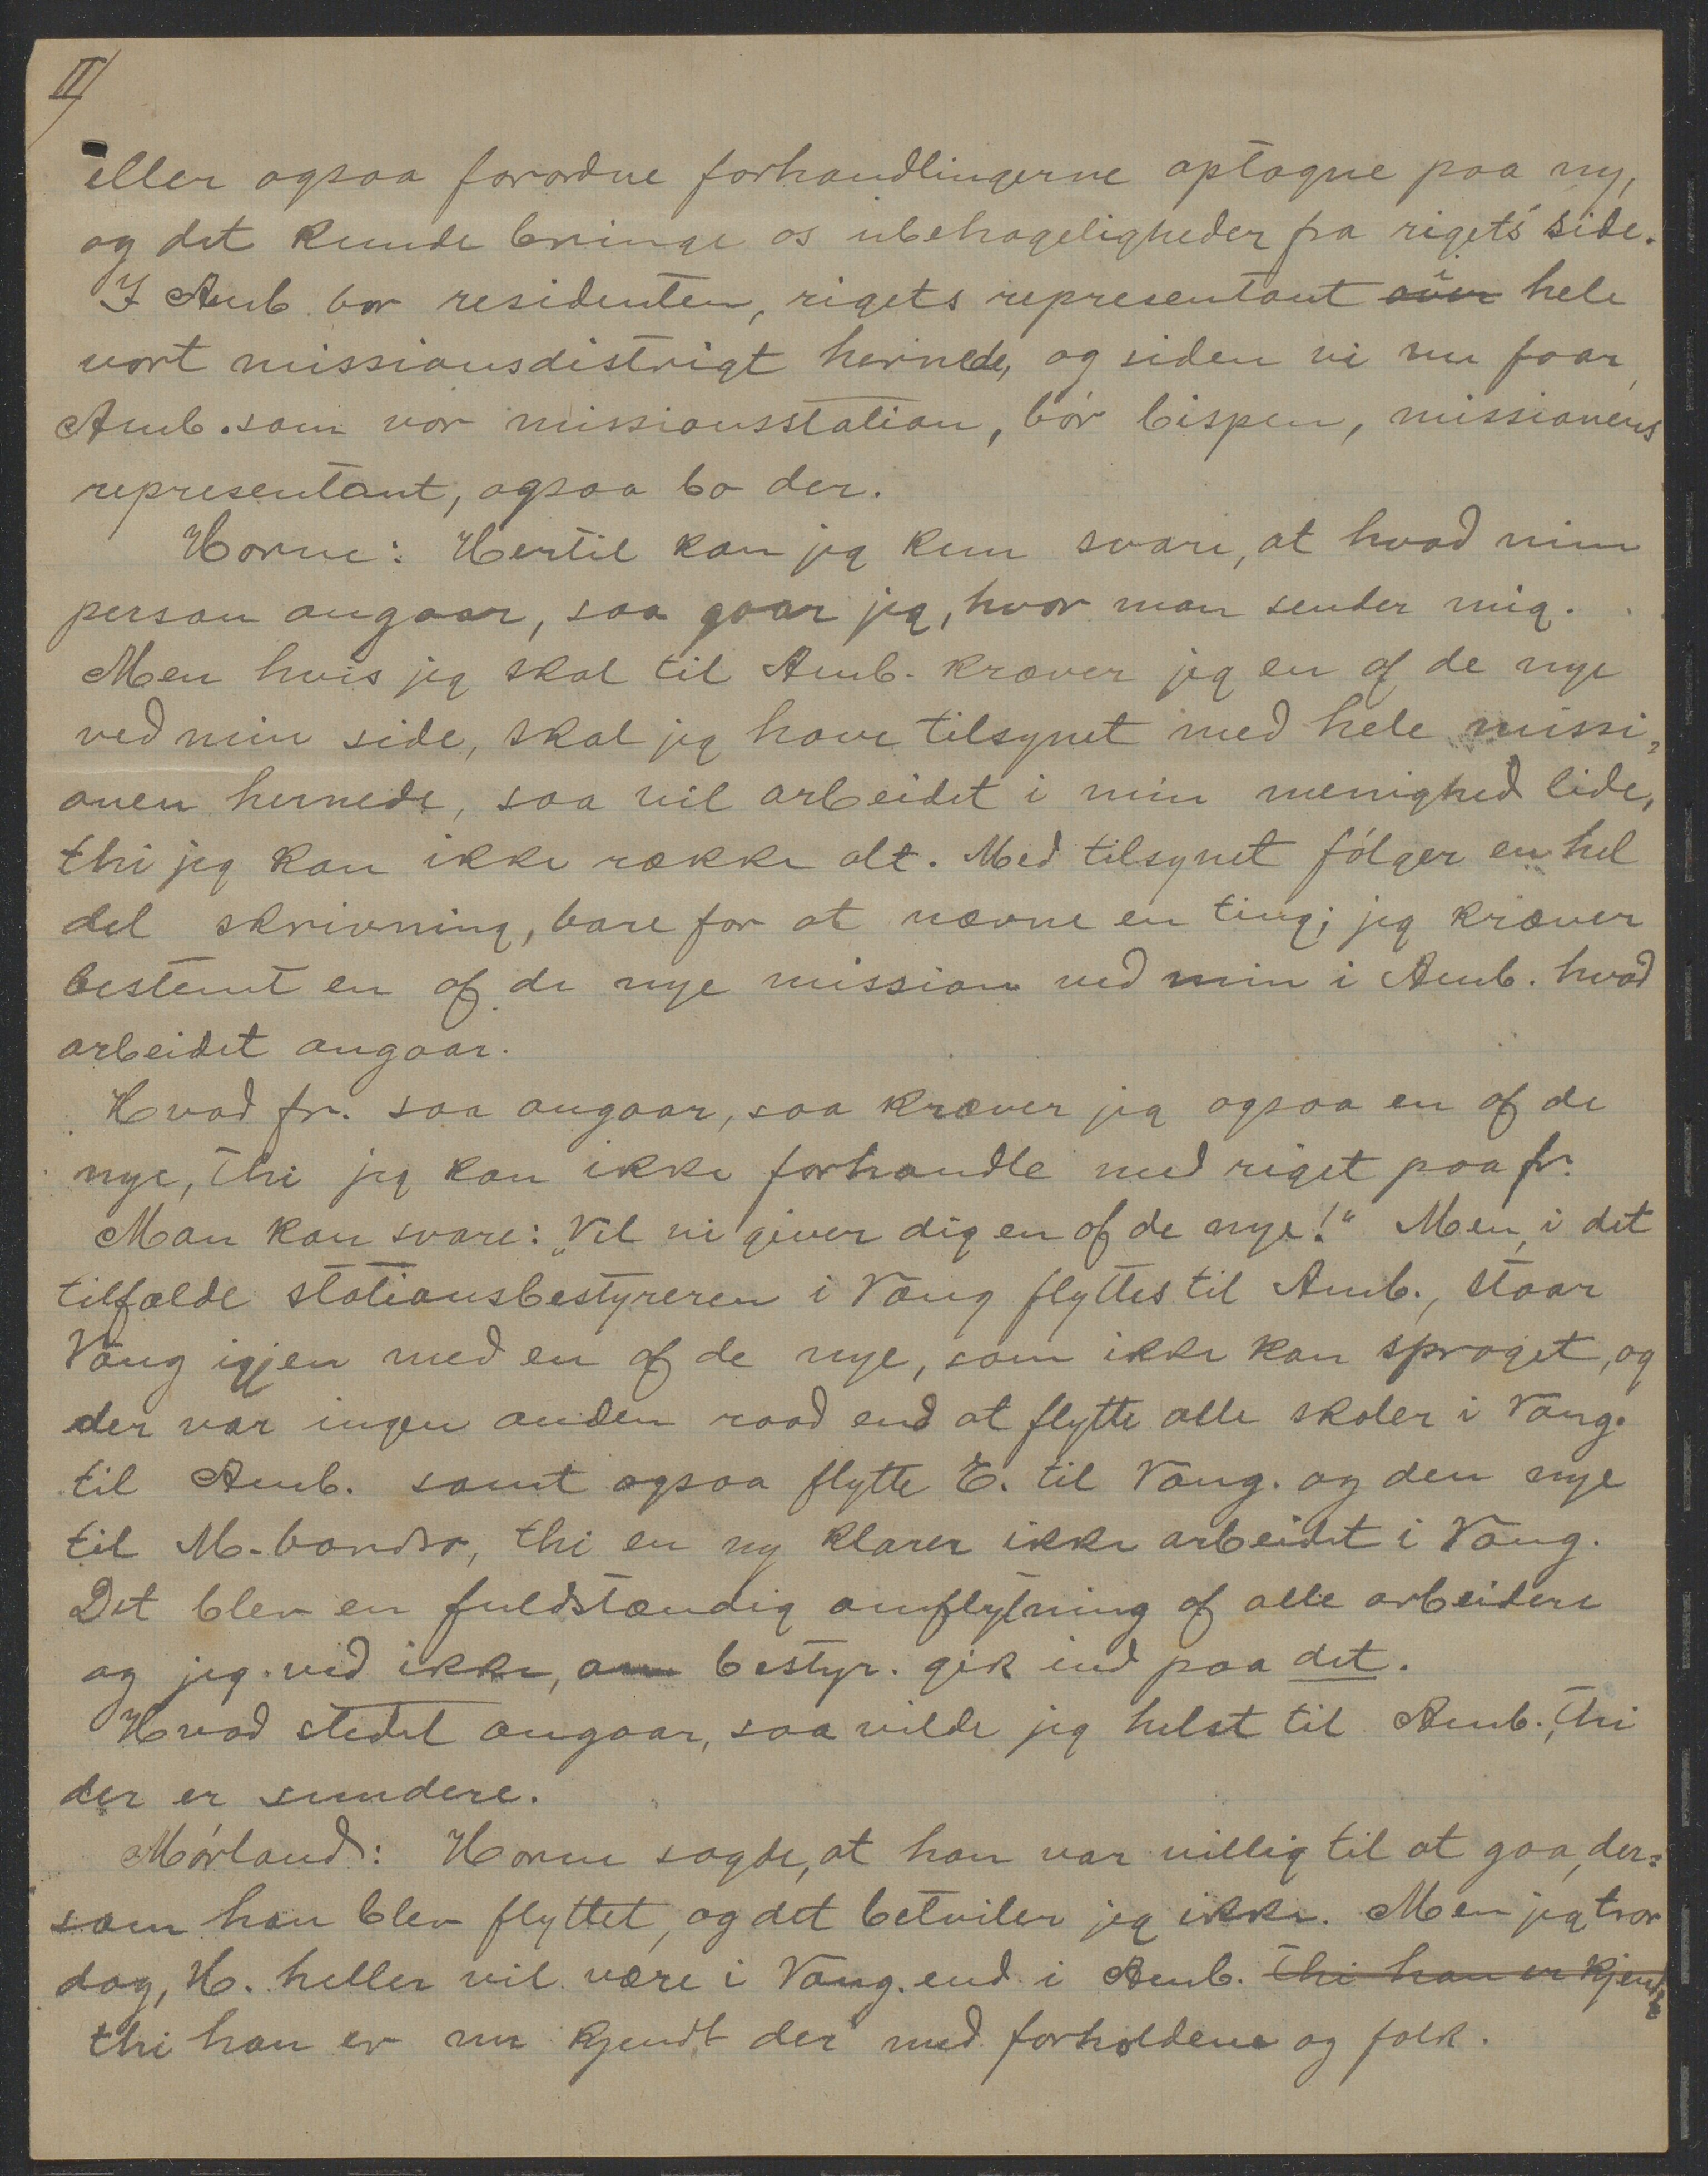 II/
eller ogsaa forordne forhandlingerne optagne paa ny,
og det kunde bringe os ubehageligheder fra rigets side.
I Amb bor residenten, rigets representant i hele
vort missionsdistrigt hernede, og siden vi nu faar
Amb. som vor missionsstation, bór bispen, missionens
representant, ogsaa bo der.
Horne: Hertil kan jeg kun svare, at hvad min
person angaar, saa gaar jeg, hvor man sender mig.
Men hvis jeg skal til Amb. kræver jeg en af de nye
ved min side, skal jeg have tilsynet med hele missi-
onen hernede, saa vil arbeidet i min menighed lide,
thi jeg kan ikke række alt. Med tilsynet fólger en hel
del skrivning, bare for at nævne en ting; jeg kræver
bestemt en af de nye mission ved min i Amb. hvad
arbeidet angaar.
Hvad fr. saa angaar, saa kræver jeg ogsaa en af de
nye, thi jeg kan ikke forhandle med riget paa fr.
Man kan svare: „Vel vi giver dig en af de nye!“ Men, i det
tilfælde stationsbestyreren i Vang flyttes til Amb., staar
Vang igjen med en af de nye, som ikke kan sproget, og
der var ingen anden raad end at flytte alle skoler i Vang.
til Amb. samt ogsaa flytte E. til Vang. og den nye
til M-bondro, thi en ny klarer ikke arbeidet i Vang.
Det blev en fuldstændig omflytning af alle arbeidere
og jeg ved ikke, om bestyr. gik ind paa det.
Hvad stedet angaar, saa vilde jeg helst til Amb., thi
der er sundere.
Mórland: Horne sagde, at han var villig til at gaa, der=
som han blev flyttet, og det betviler jeg ikke. Men jeg tror
dog, H. heller vil være i Vang. end i Amb. thi han er kjendt
thi han er nu kjendt der med forholdene og folk.